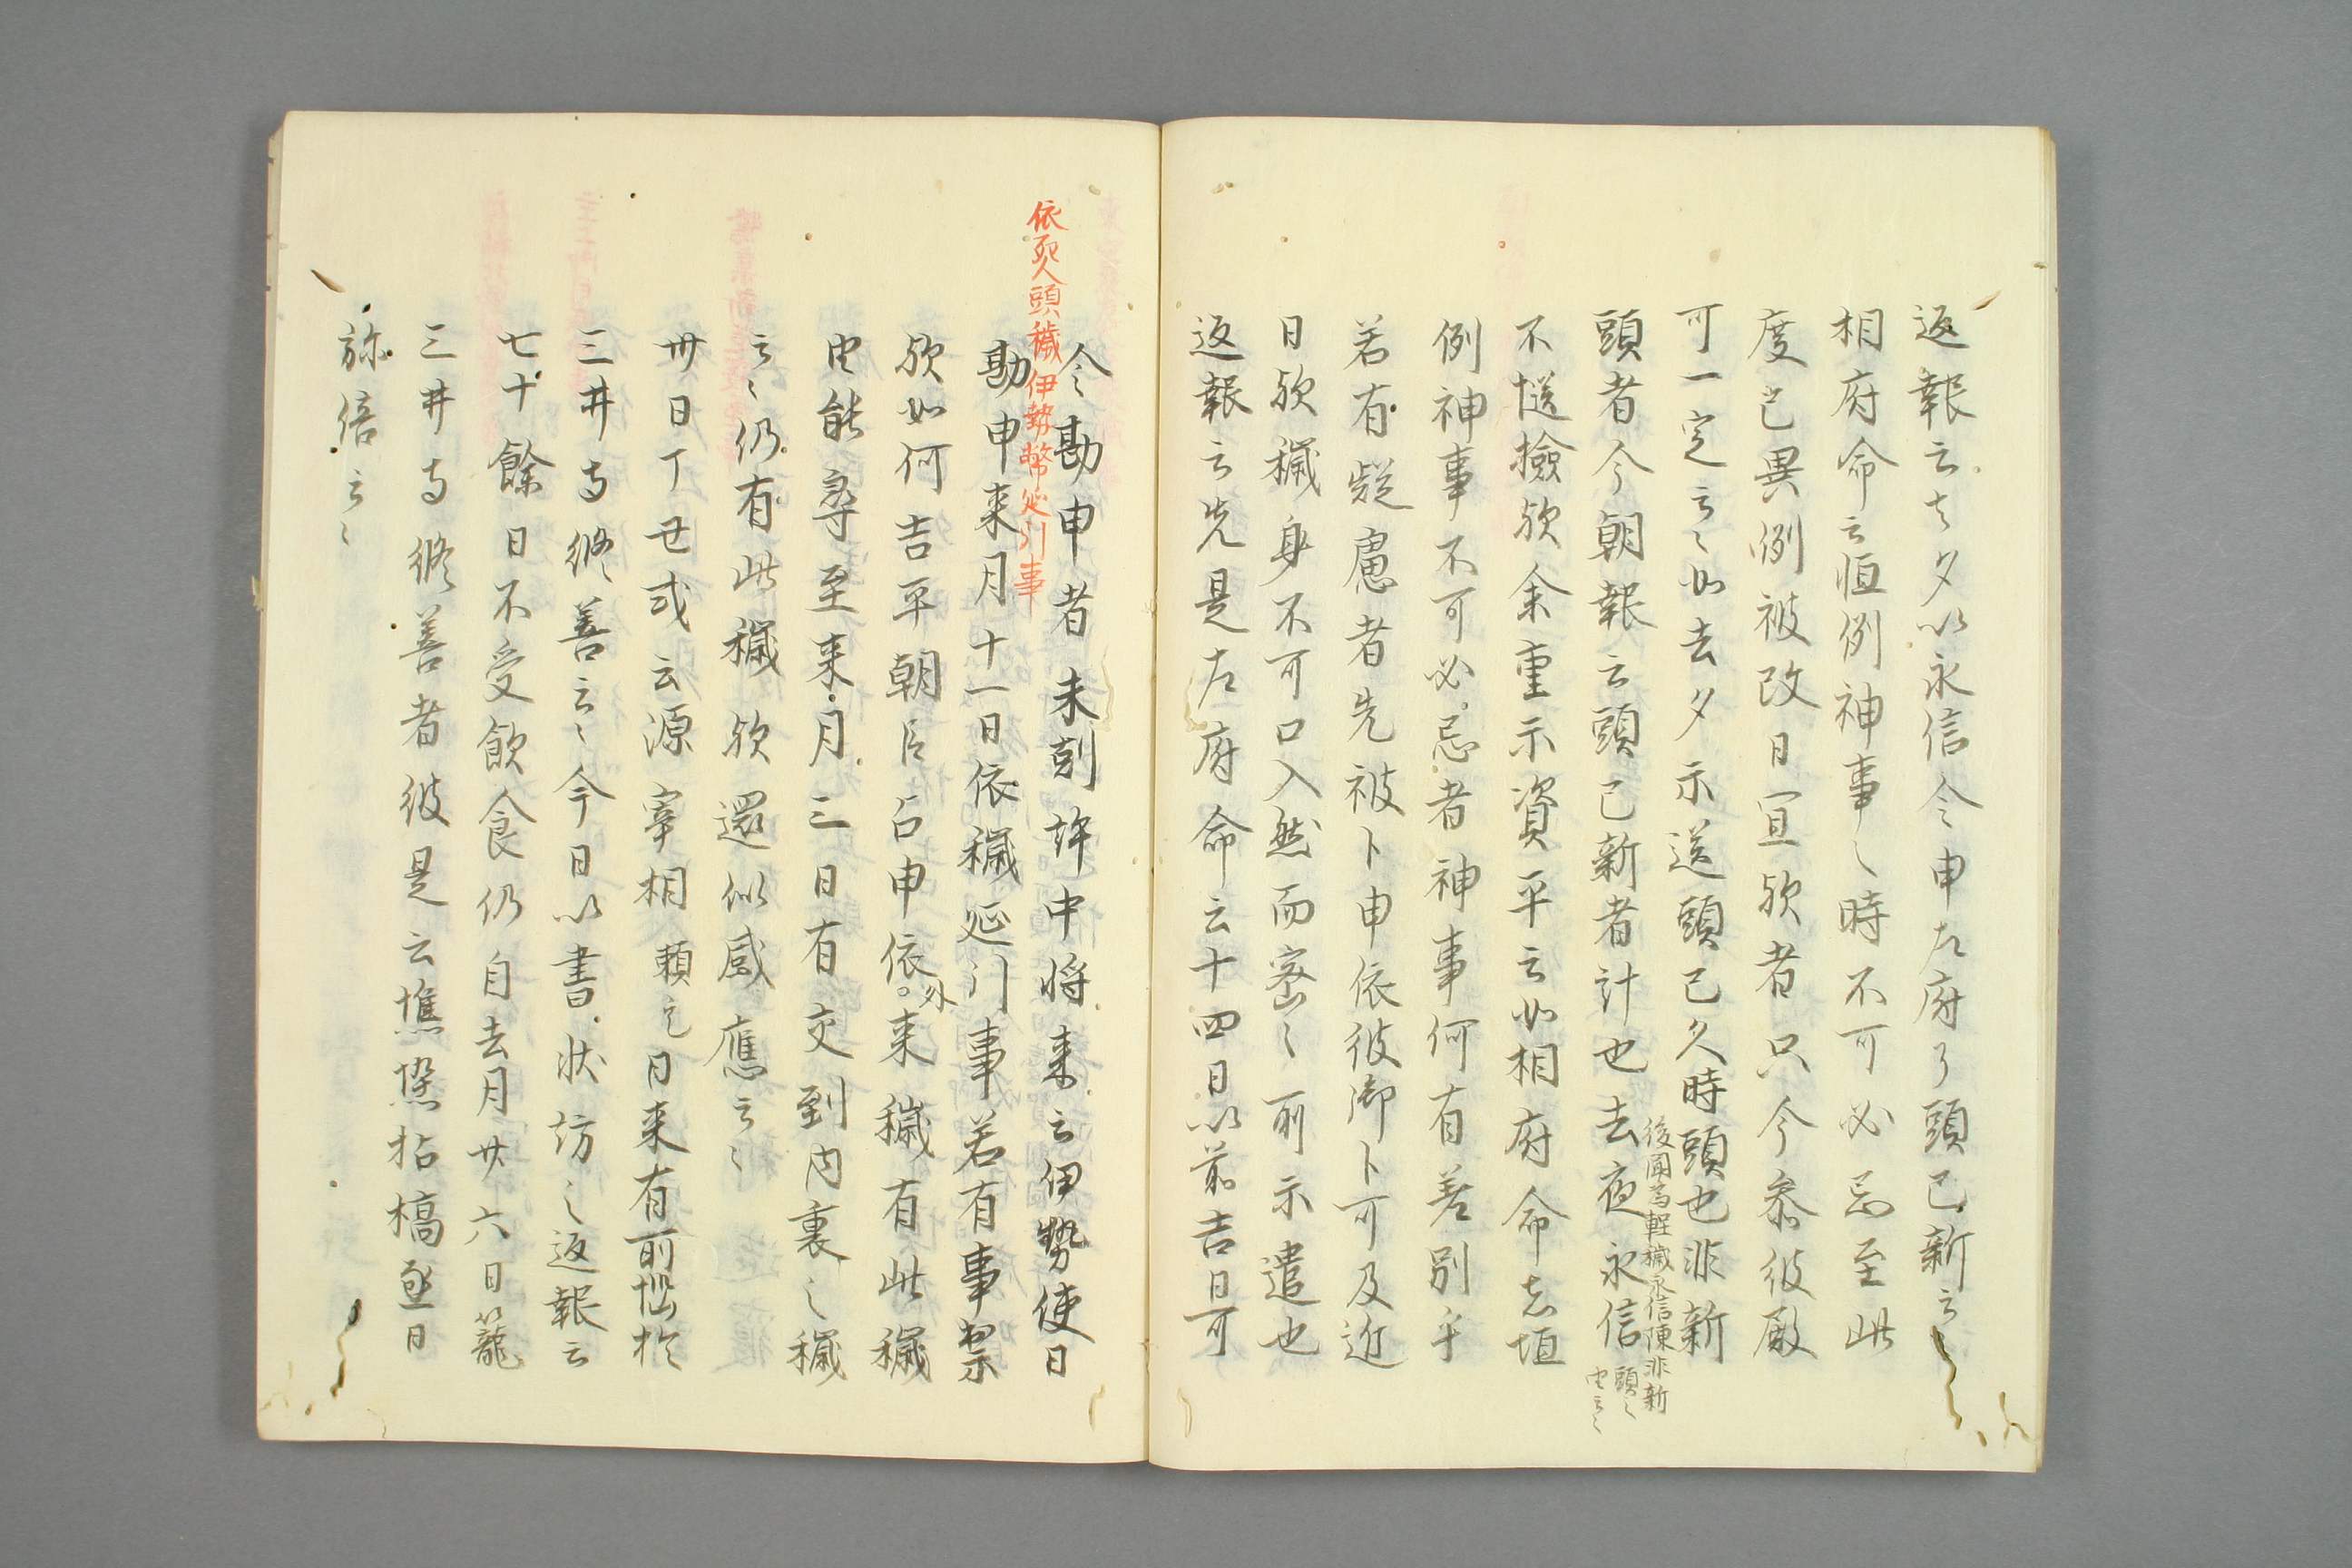 返報云去夕以永信令申左府了頭已新云々
相府命云恒例神事之時不可必忌至此
度已異例被改日宜欤者只今参彼殿
可一定云々如去夕示送頭已久時頭也非新
後聞為軽穢永信陳非新
頭之
由云々
頭者今朝報云頭已新者計也去夜永信
不慥撿欤余重示資平云如相府命者恒
例神事不可必忌者神事何有差別乎
若有疑慮者先被卜申依彼御卜可及近
日欤穢身不可口入然而密々所示遣也
返報云先是左府命云十四日以前吉日可
令勘申者未剋許中将来云伊勢使日
依死人頭穢伊勢幣延引事
勘申来月十一日依穢延引事若有事祟
欤如何吉平朝臣占申依外来穢有此穢
由能尋至来月三日有交到内裏之穢
云々仍有此穢欤還似感應云々
卅日丁丑或云源宰相頼定日来有所悩於
三井寺修善云々今日以書状訪之返報云
七十餘日不受飲食仍自去月廿六日籠
三井寺修善者彼是云憔悴枯槁逐日
弥倍云々